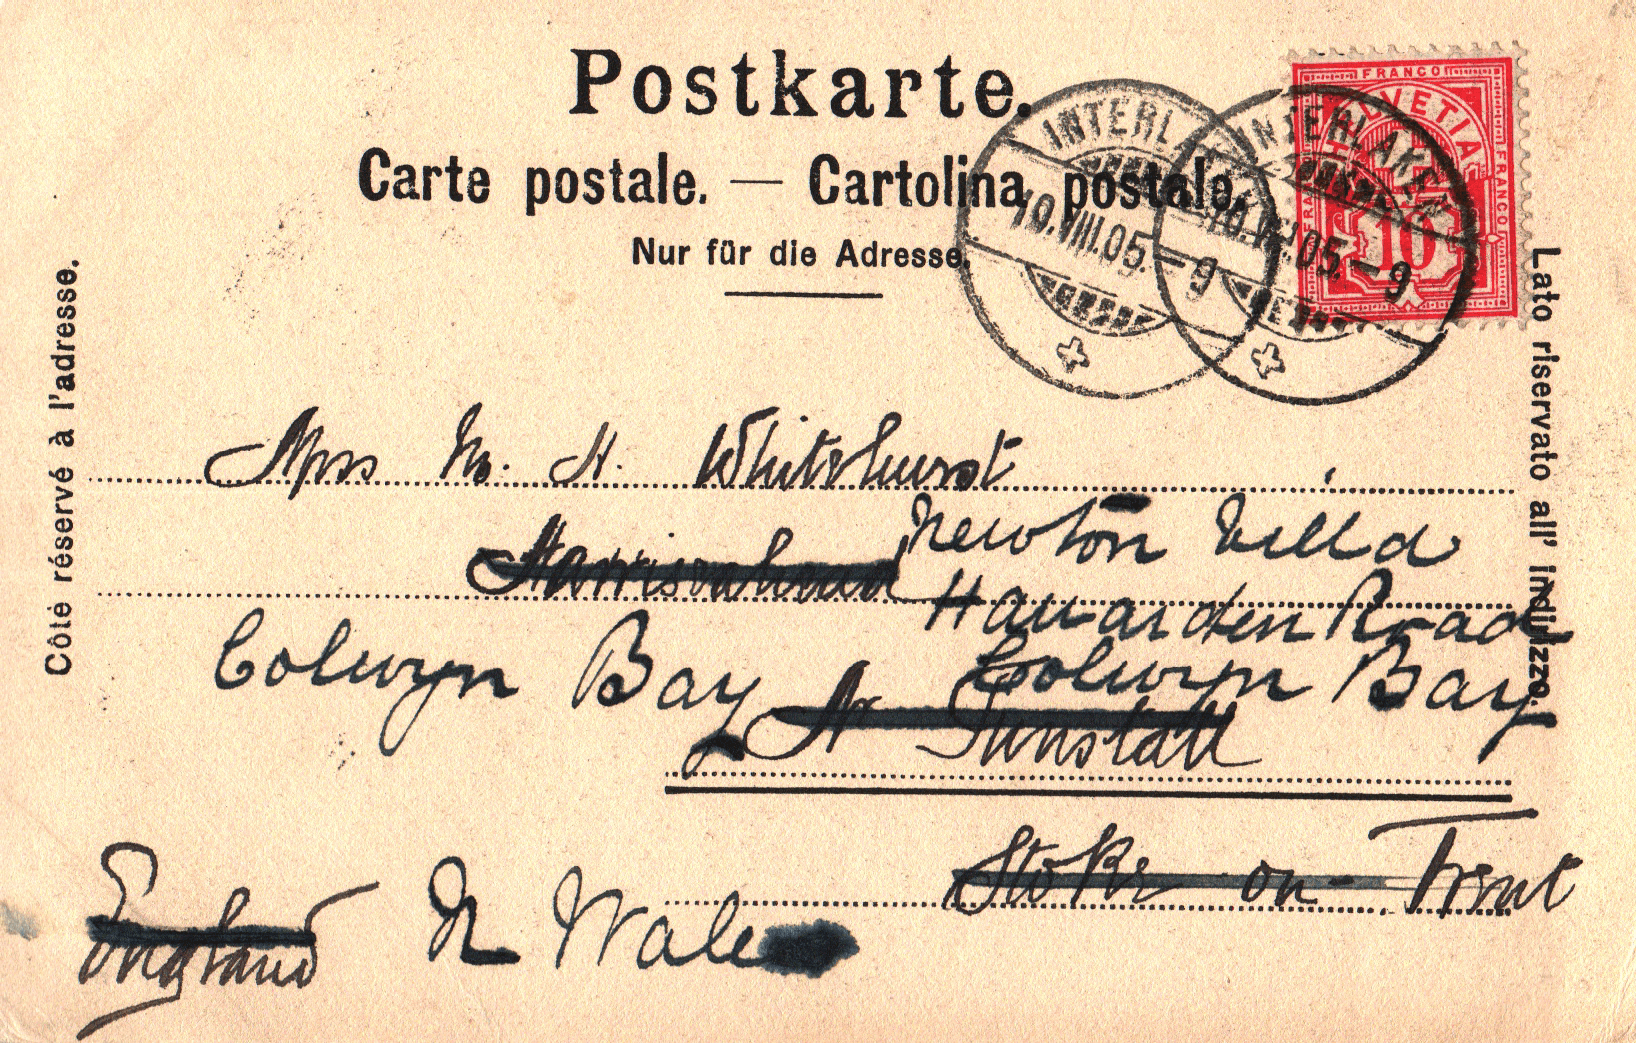 Postkarte.
Carte postale. — Cartolina postale.
Nur für die Adresse.
FRANCO
HELVETIA
FRANCO
FRANCO
10
INTERLAKEN
10.VIII.05.–9
INTERLAKEN
10.VIII.05.–9
Côté réservé à l'adresse.
Lato riservato all' indirizzo.
Miss M. H. Whitehurst
Harriseahead
Newton Villa
Hawarden Road
Colwyn Bay
Colwyn Bay
Nr Tunstall
Stoke on-Trent
England
N Wales